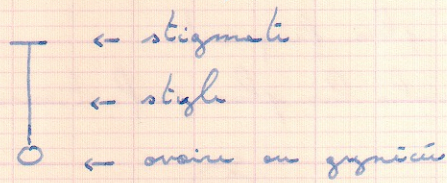 ← stigmate
← style
← ovaire ou gynécée